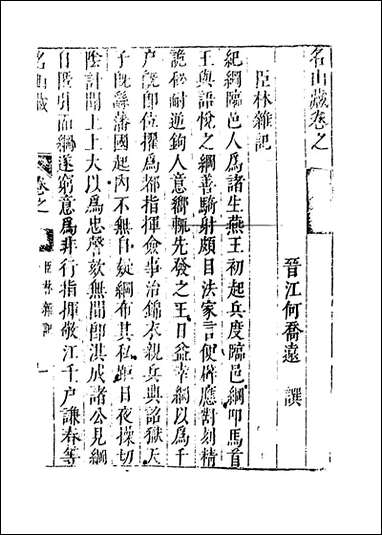 名山藏卷之
晉江何喬遠 譔
臣林雜記
紀綱臨邑人爲諸生燕王初起兵度臨邑綱叩馬首
王與語悅之綱善騎射頗目法家言便辟應對刻精
詭秘耐逆鉤人意嚮輒先發之王日益幸綱以爲千
户旣卽位擢爲都指揮僉事治錦衣親兵與詔獄天
子旣繇藩國起內不無自疑綱布其私
日夜操切
陰計聞上上大以爲忠聲欬無間卽淇成諸公見綱
自
引面綱遂窮意爲非行指揮敬江千户謙春等
名山藏
卷之
臣林雜記
一